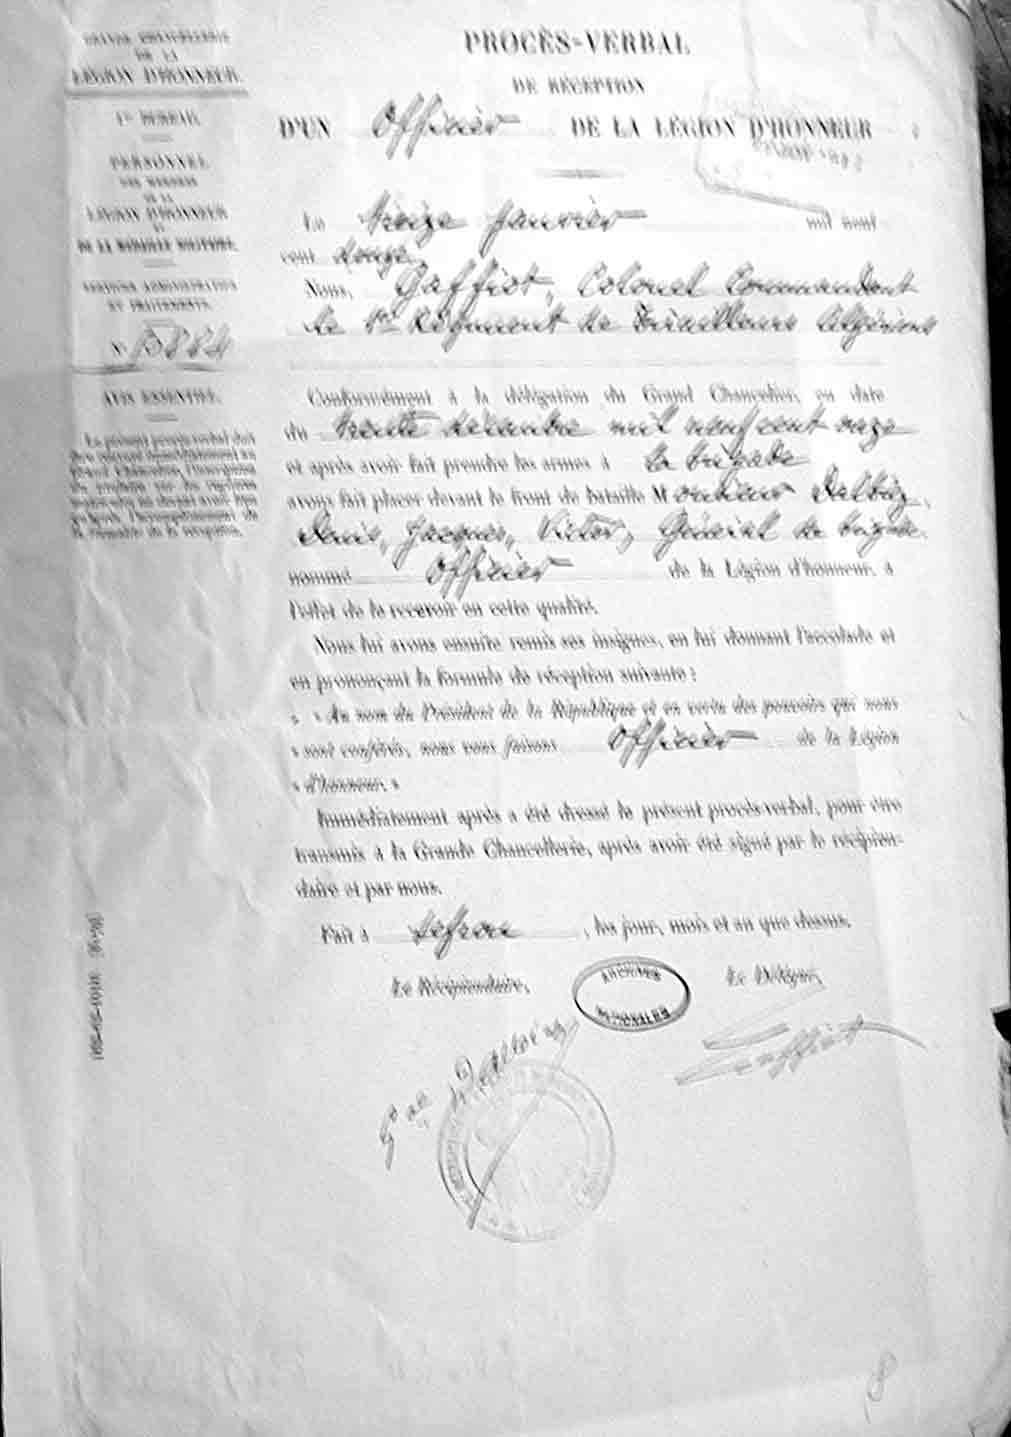 GRANDE CHANCELLERIE
DE LA
LÉGION D'HONNEUR.
1er BUREAU.
PERSONNEL
DES MEMBRES
DE LA
LÉGION D'HONNEUR
ET
DE LA MÉDAILLE MILITAIRE.
SECTION ADMINISTRATION
ET TRAITEMENTS.
AVIS ESSENTIEL.
Le présent procès-verbal doit
PROCÈS-VERBAL
DE RÉCEPTION
D'UN Officier DE LA LÉGION D'HONNEUR
Le treize Janvier mil neuf
cent douze
Nous, Gaffiot, Colonel Commandant
le 1er Régiment de Tirailleurs Algériens
Conformément à la délégation du Grand Chancelier, en date
du trente décembre mil neuf cent onze
et après avoir fait prendre les armes à la brigade
avons fait placer devant le front de bataille Monsieur Dalbiez,
Denis, Jacques, Victor, Général de brigade
nommé Officier de la Légion d'honneur, à
l'effet de le recevoir en cette qualité.
Nous lui avons ensuite remis ses insignes, en lui donnant l'accolade et
en prononçant la formule de réception suivante :
« « Au nom du Président de la République et en vertu des pouvoirs qui nous
« sont conférés, nous vous faisons Officier de la Légion
« d'honneur. »
Immédiatement après a été dressé le présent procès-verbal, pour être
transmis à la Grande Chancellerie, après avoir été signé par le récipien-
daire et par nous.
Fait à Sefrou, les jour, mois et an que dessus.
Le Récipiendaire, Le Délégué,
ARCHIVES
NATIONALES
Gaffiot
8